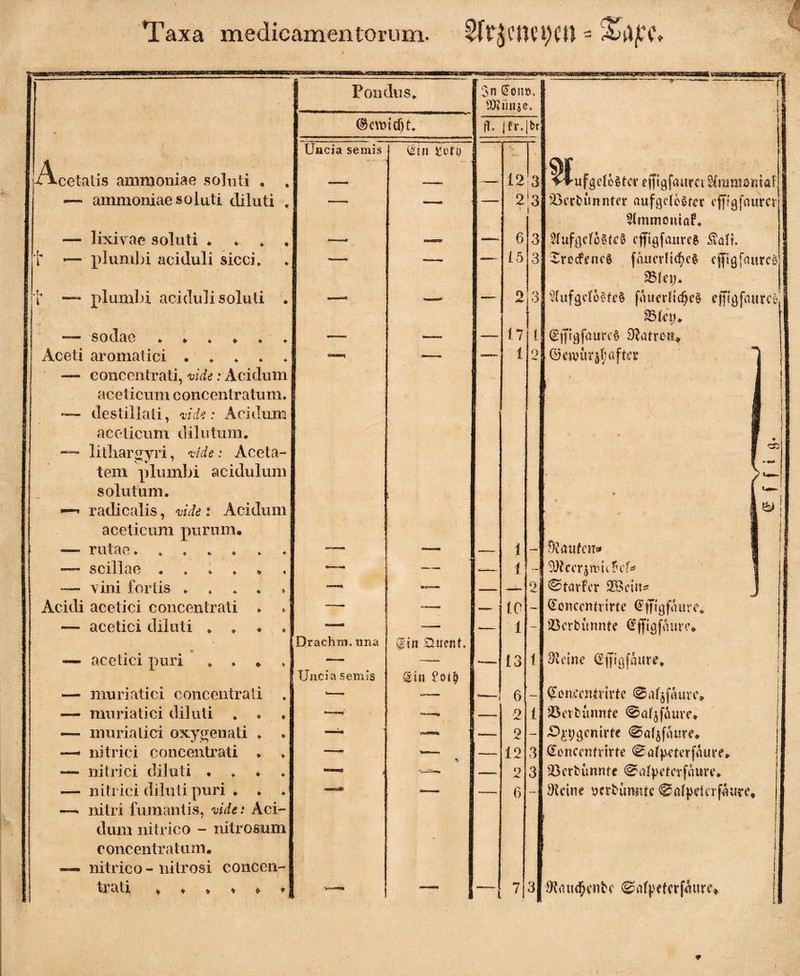 Taxa medicamentorum. Arzeneyen = Taxe.
Pondus. In Conv. Münze.
Gewicht. fl. | kr. | dr
Uncia semis Ein Loth
Acetatis ammoniae soluti . . — — — 12 3 Aufgelöster essigsaurer Ammoniak
— ammoniae soluti diluti . — — — 2 3 Verdünnter aufgelöster essigsaurer
Ammoniak.
— lixivae soluti . . . . — — — 6 3 Aufgelöstes essigsaures Kali.
† — plumbi aciduli sicci. . — — — 15 3 Trockenes säuerliches essigsaures
Bley.
† — plumbi aciduli soluti . — — — 2 3 Aufgelöstes säuerliches essigsaures
Bley.
— sodae . . . . . . — — — 17 1 Essigsaures Natron.
Aceti aromatici . . . . . — — — 1 2 Gewürzhafter
— concentrati, vide: Acidum
aceticum concentratum.
— destillati, vide: Acidum
aceticum dilutum.
— lithargyri, vide: Aceta-
tem plumbi acidulum
solutum.
— radicalis, vide: Acidum
aceticum purum.
— rutae. . . . . . . — — — 1 - Rauten=
— scillae . . . . . . — — — 1 - Meerzwiebel=
— vini fortis . . . . . — — — — 2 Starker Wein=
Essig.
Acidi acetici concentrati . . — — — 10 - Concentrirte Essigsäure.
— acetici diluti . . . . — — — 1 - Verdünnte Essigsäure.
Drachm. una Ein Quent.
— acetici puri . . . . — — — 13 1 Reine Essigsäure.
Uncia semis Ein Loth
— muriatici concentrati . — — — 6 - Concentrirte Salzsäure.
— muriatici diluti . . . — — — 2 1 Verdünnte Salzsäure.
— muriatici oxygenati . . — — — 2 - Oxygenirte Salzsäure.
— nitrici concentrati . . — — — 12 3 Concentrirte Salpetersäure.
— nitrici diluti . . . . — — — 2 3 Verdünnte Salpetersäure.
— nitrici diluti puri . . . — — — 6 - Reine verdünnte Salpetersäure.
— nitri fumantis, vide: Aci-
dum nitrico - nitrosum
concentratum.
— nitrico - nitrosi concen-
trati . . . . . . — — — 7 3 Rauchende Salpetersäure.